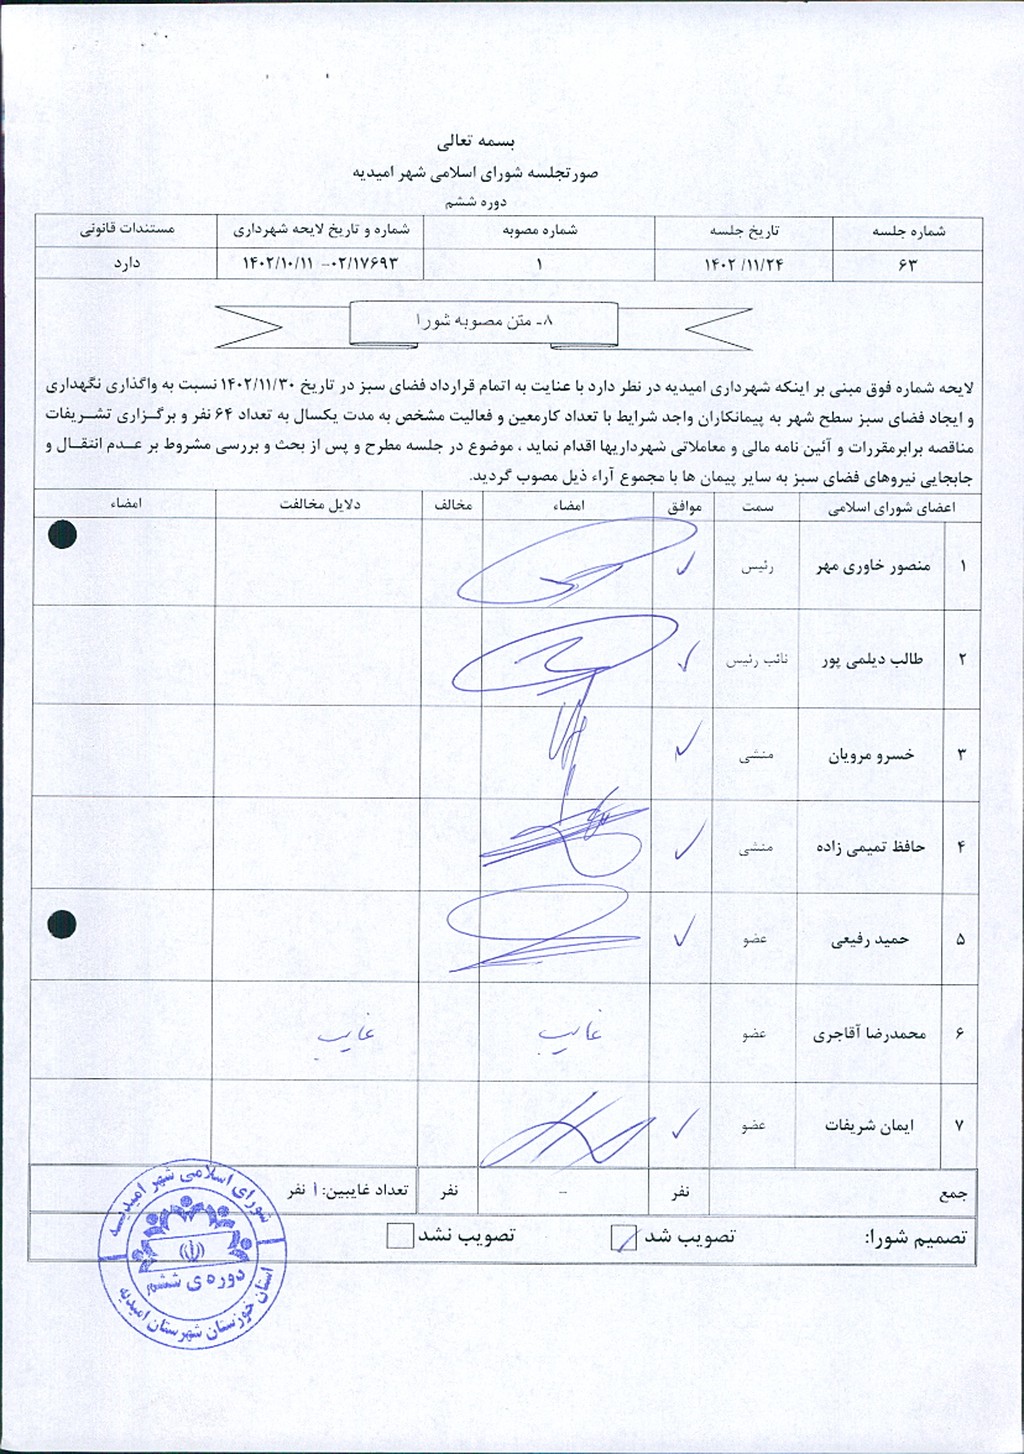 بسمه تعالی
صورتجلسه شورای اسلامی شهر امیدیه
دوره ششم
شماره جلسه تاریخ جلسه شماره مصوبه شماره و تاریخ لایحه شهرداری مستندات قانونی
۶۳ ۱۴۰۲/۱۱/۲۴ ۱ ۰۲/۱۷۶۹۳-۱۴۰۲/۱۰/۱۱ دارد
۸- متن مصوبه شورا
لایحه شماره فوق مبنی بر اینکه شهرداری امیدیه در نظر دارد با عنایت به اتمام قرارداد فضای سبز در تاریخ ۱۴۰۲/۱۱/۳۰ نسبت به واگذاری نگهداری
و ایجاد فضای سبز سطح شهر به پیمانکاران واجد شرایط با تعداد کارمعین و فعالیت مشخص به مدت یکسال به تعداد ۶۴ نفر و برگزاری تشریفات
مناقصه برابرمقررات و آئین نامه مالی و معاملاتی شهرداریها اقدام نماید ، موضوع در جلسه مطرح و پس از بحث و بررسی مشروط بر عدم انتقال و
جابجایی نیروهای فضای سبز به سایر پیمان ها با مجموع آراء ذیل مصوب گردید.
اعضای شورای اسلامی سمت موافق امضاء مخالف دلایل مخالفت امضاء
۱ منصور خاوری مهر رئیس ✓
۲ طالب دیلمی پور نائب رئیس ✓
۳ خسرو مرویان منشی ✓
۴ حافظ تمیمی زاده منشی ✓
۵ حمید رفیعی عضو ✓
۶ محمدرضا آقاجری عضو غایب غایب
۷ ایمان شریفات عضو ✓
جمع نفر - نفر تعداد غایبین: ۱ نفر
تصمیم شورا: تصویب شد ✓ تصویب نشد
شورای اسلامی شهر امیدیه
دوره ی ششم
استان خوزستان شهرستان امیدیه